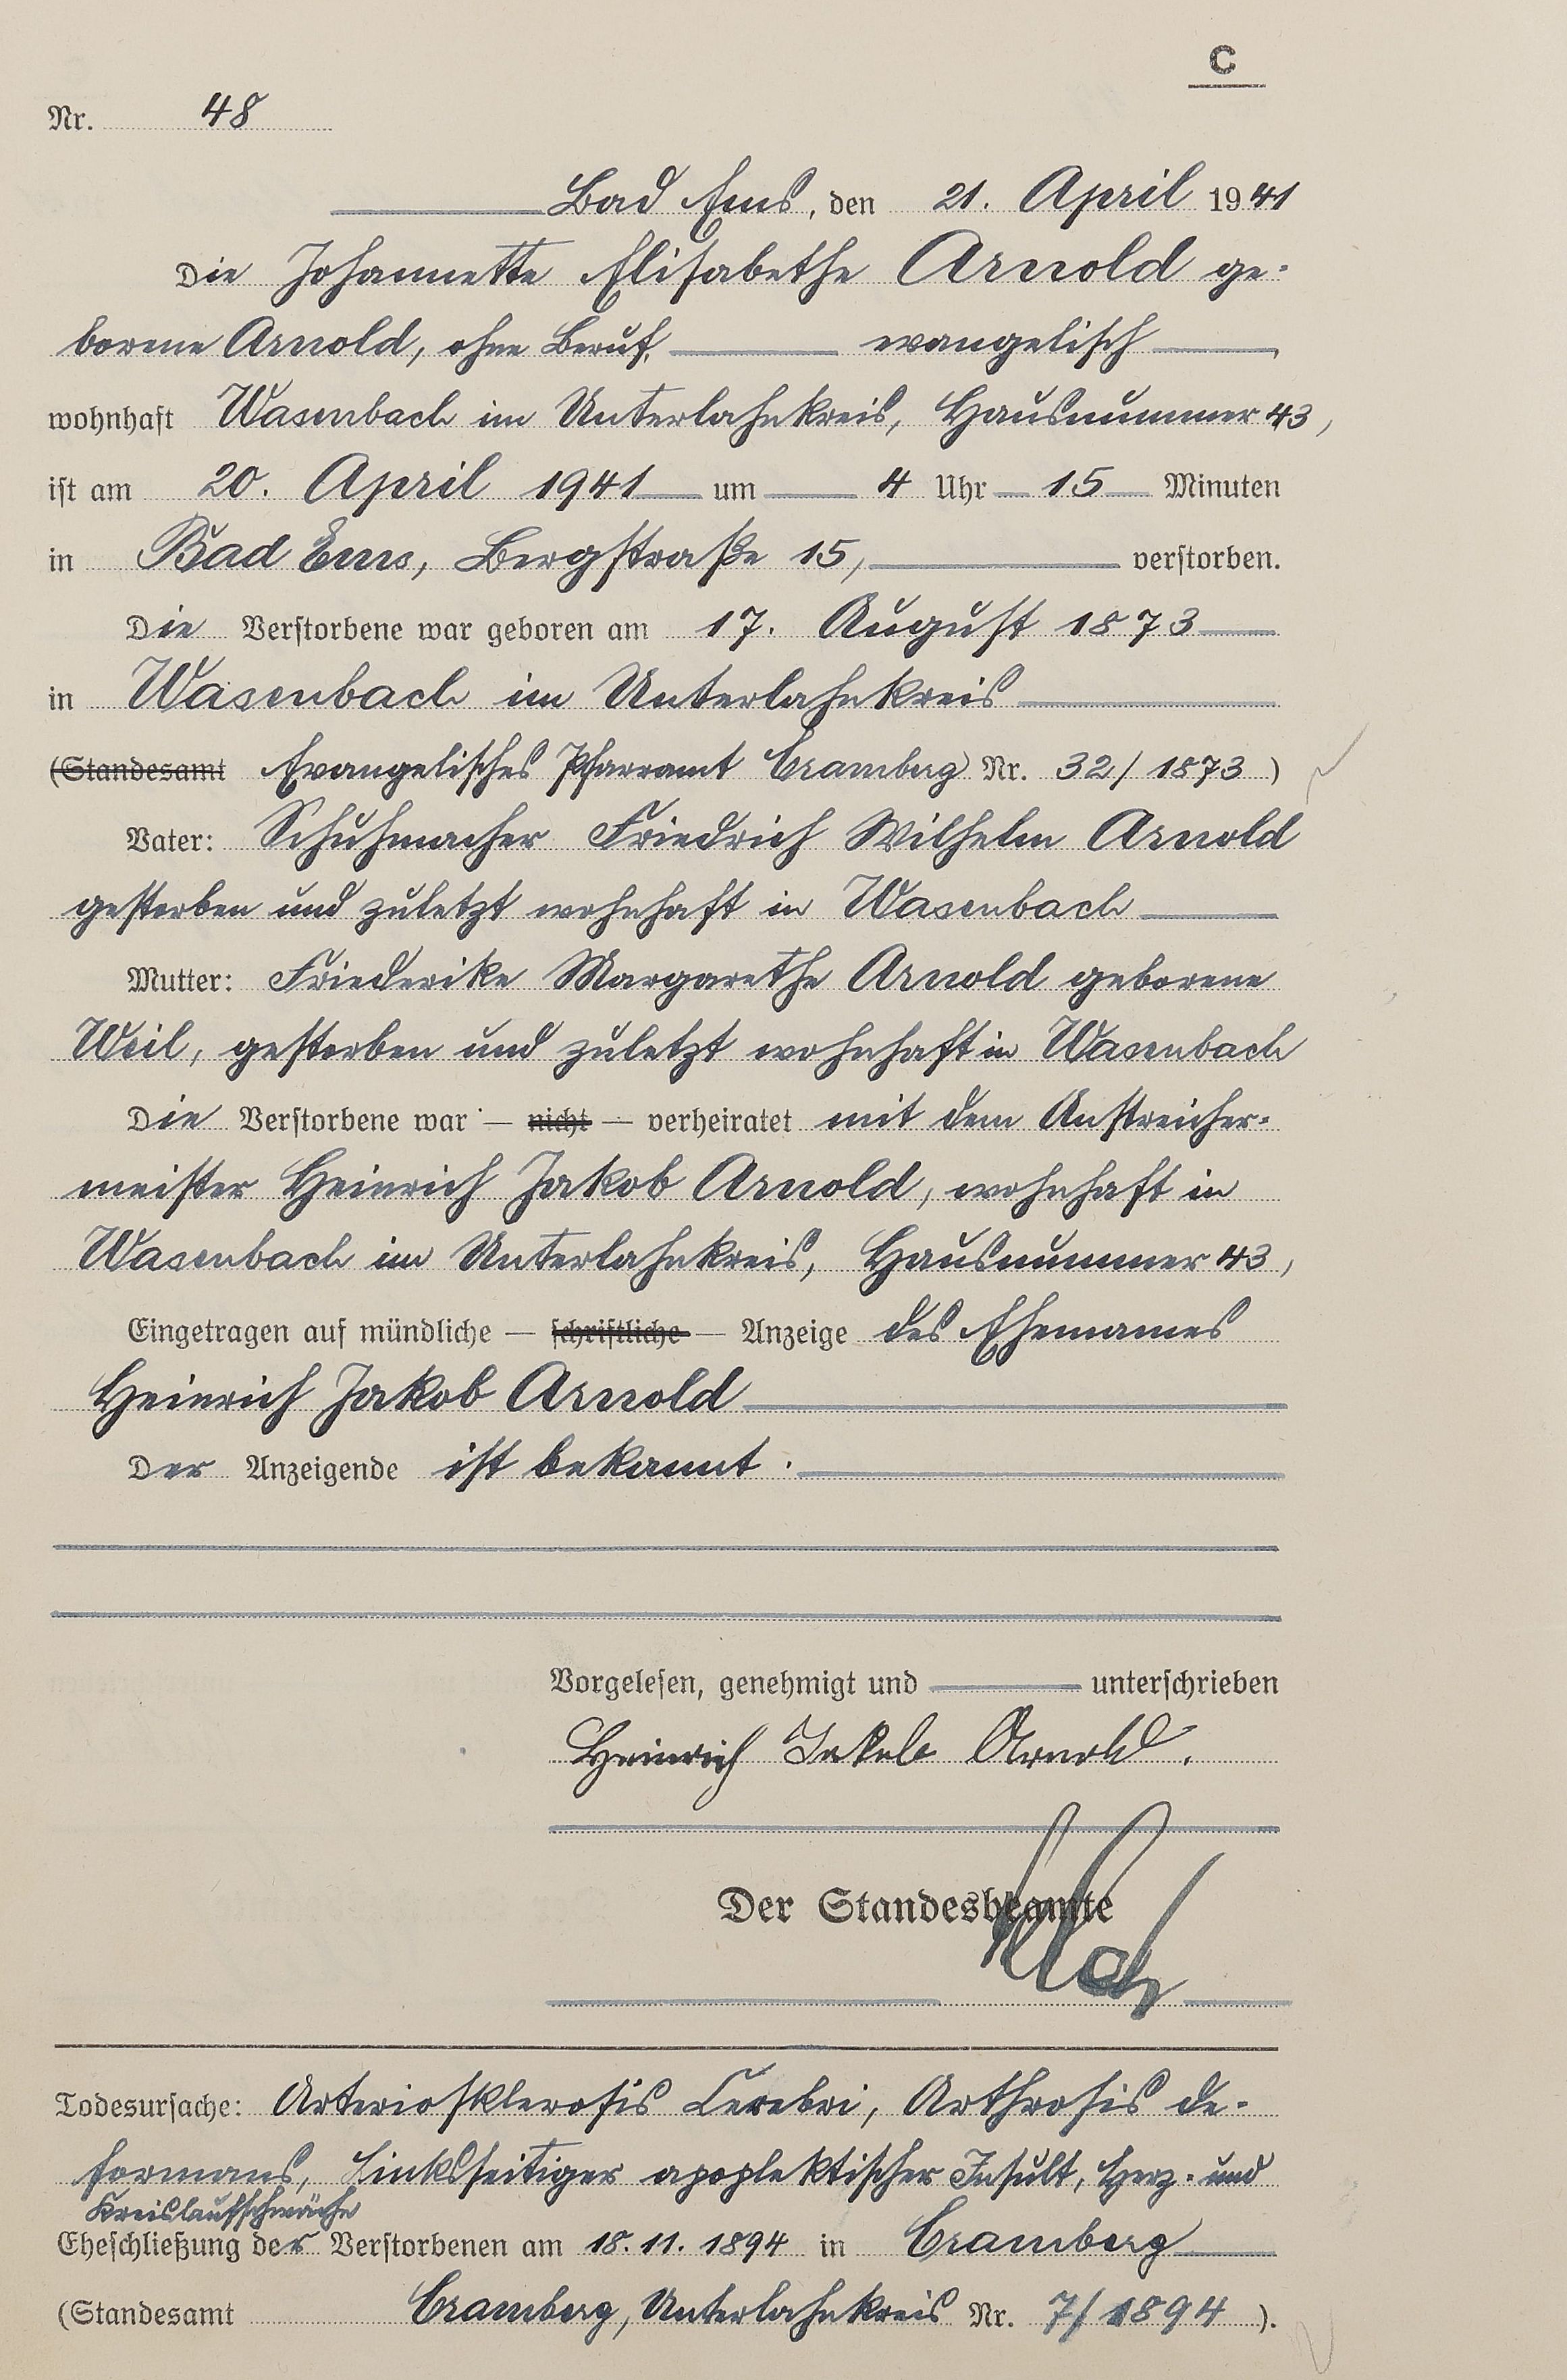 C
Nr. 48
Bad Ems, den 21. April 1941
Die Johannette Elisabethe Arnold ge-
borene Arnold, ohne Beruf, evangelisch
wohnhaft Wasenbach im Unterlahnkreis, Hausnummer 43,
ist am 20. April 1941 um 4 Uhr 15 Minuten
in Bad Ems, Bergstraße 15, verstorben.
Die Verstorbene war geboren am 17. August 1873
in Wasenbach im Unterlahnkreis
(Standesamt Evangelisches Pfarramt Cramberg Nr. 32/1873)
Vater: Schuhmacher Friedrich Wilhelm Arnold
gestorben und zuletzt wohnhaft in Wasenbach
Mutter: Friederike Margarethe Arnold geborene
Weil, gestorben und zuletzt wohnhaft in Wasenbach
Die Verstorbene war — nicht — verheiratet mit dem Anstreicher-
meister Heinrich Jakob Arnold, wohnhaft in
Wasenbach im Unterlahnkreis, Hausnummer 43,
Eingetragen auf mündliche — schriftliche — Anzeige des Ehemannes
Heinrich Jakob Arnold
Der Anzeigende ist bekannt.
Vorgelesen, genehmigt und unterschrieben
Heinrich Jakob Arnold.
Der Standesbeamte
Todesursache: Arteriosklerosis Cerebri, Arthrosis de-
formans, linksseitiger apoplektischer Insult, Herz- und
Kreislaufschwäche
Eheschließung der Verstorbenen am 18.11.1894 in Cramberg
(Standesamt Cramberg, Unterlahnkreis Nr. 7/1894).